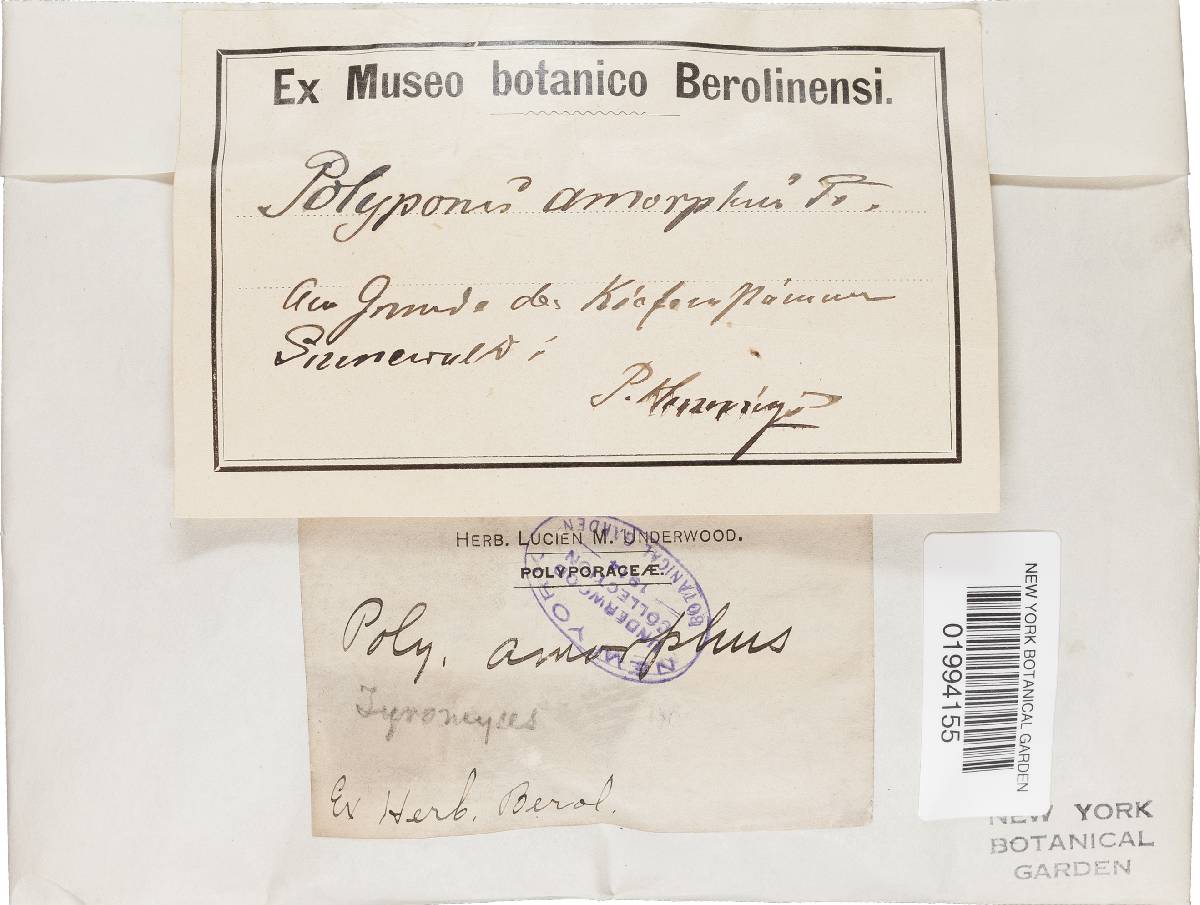 Ex Museo botanico Berolinensi.
Polyporus amorphus Fr.
Am Grunde der Kiefernstämme
Grunewald
P. Hennings
HERB. LUCIEN M. UNDERWOOD.
POLYPORACEÆ.
NEW YORK BOTANICAL GARDEN
UNDERWOOD
COLLECTION
Poly. amorphus
Tyromyces
Ex Herb. Berol.
NEW YORK BOTANICAL GARDEN
01994155
NEW YORK
BOTANICAL
GARDEN